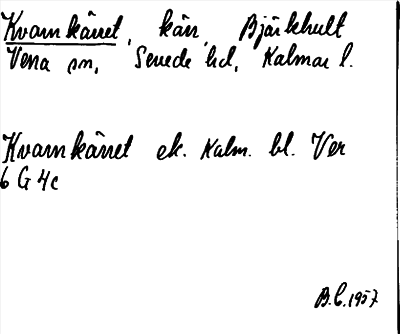 Kvarnkärret, kärr, Bjärkhult
Vena sn, Sevede hd, Kalmar l.
Kvarnkärret ek. Kalm. bl. Ver
6 G 4c
B.L. 1957